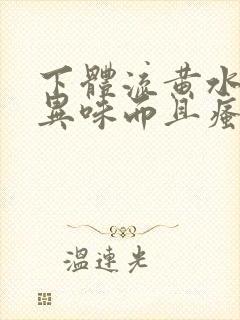 下體流黃水
異味而且瘙
溫連光